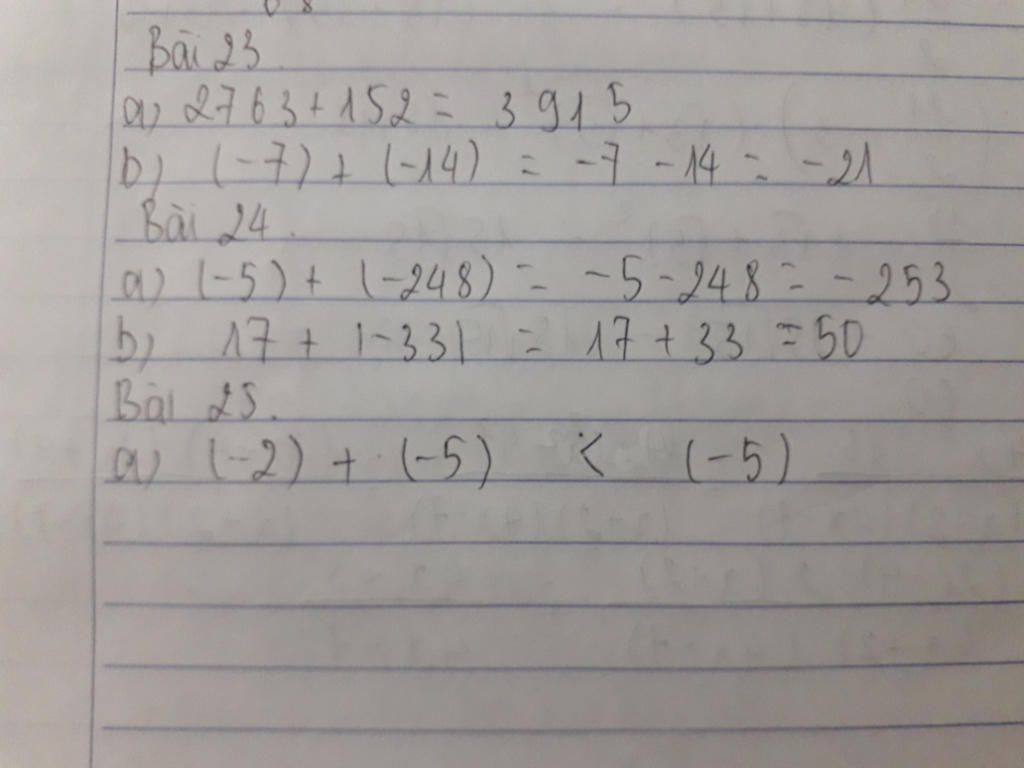 Bài 23.
a) 2763 + 152 = 3915
b) (-7) + (-14) = -7 - 14 = -21
Bài 24.
a) (-5) + (-248) = -5 - 248 = -253
b) 17 + |-33| = 17 + 33 = 50
Bài 25.
a) (-2) + (-5) < (-5)